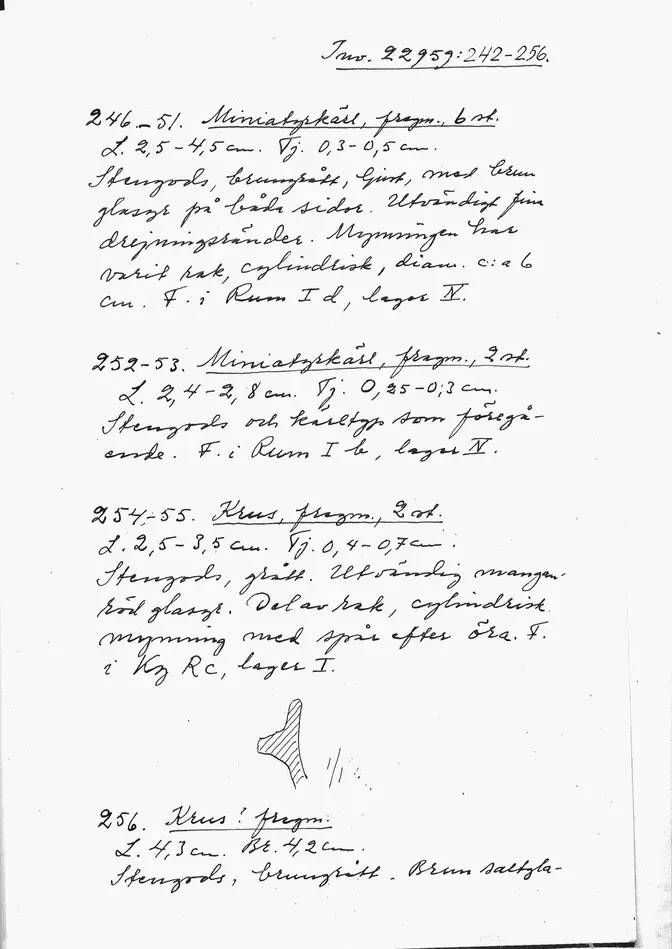 Inv. 22959:242-256.
246-51. Miniatyrkärl, fragm., 6 st.
L. 2,5-4,5 cm. Tj. 0,3-0,5 cm.
Stengods, brungrått, ljust, med brun
glasyr på båda sidor. Utvändigt fina
drejningsränder. Mynningen har
varit rak, cylindrisk, diam. c:a 6
cm. F. i Rum I d, lager IV.
252-53. Miniatyrkärl, fragm., 2 st.
L. 2,4-2,8 cm. Tj. 0,25-0,3 cm.
Stengods och kärltyp som föregå-
ende. F. i Rum I b, lager IV.
254-55. Krus, fragm., 2 st.
L. 2,5-3,5 cm. Tj. 0,4-0,7 cm.
Stengods, grått. Utvändig mangan-
röd glasyr. Del av rak, cylindrisk
mynning med spår efter öra. F.
i Kz Rc, lager I.
1/1
256. Krus? fragm.
L. 4,3 cm. Br. 4,2 cm.
Stengods, brungrått. Brun saltgla-